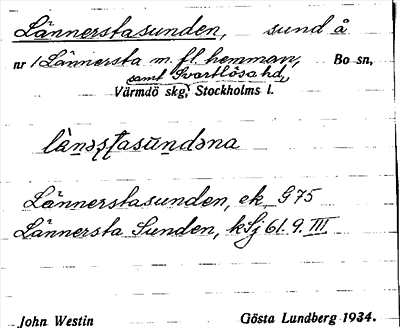 Lännerstasunden, sund å
nr 1 Lännersta m. fl. hemman, Bo sn,
samt Svartlösa hd,
Värmdö skg, Stockholms l.
lä̀nəʂʈasūndəna
Lännerstasunden, ek G75
Lännersta Sunden, kSj 61.9.III
John Westin Gösta Lundberg 1934.